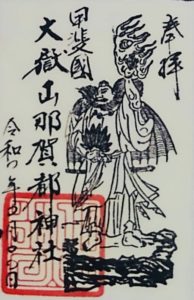 奉拝
甲斐國
大嶽山那賀都神社
令和 年五月 日